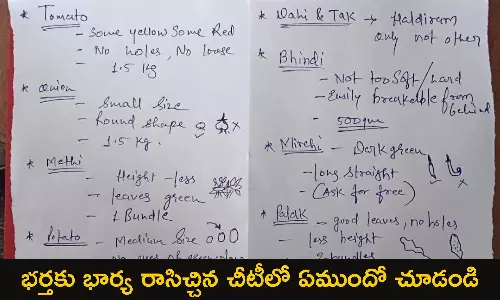 * Tomato
- Some yellow Some Red
- No holes, No loose
- 1.5 kg
* Onion
- Small size
- Round shape
- 1.5 kg.
* Methi
- Height - less
- leaves green
- 1 Bundle
* Potato - Medium Size
* Dahi & Tak → Haldiram
only not other
* Bhindi
- Not too Soft/hard
- Easily breakable from
behind
- 500gm
* Mirchi - Dark green
- long straight
- (Ask for free)
* Palak - good leaves, no holes
- less height
భర్తకు భార్య రాసిచ్చిన చీటీలో ఏముందో చూడండి